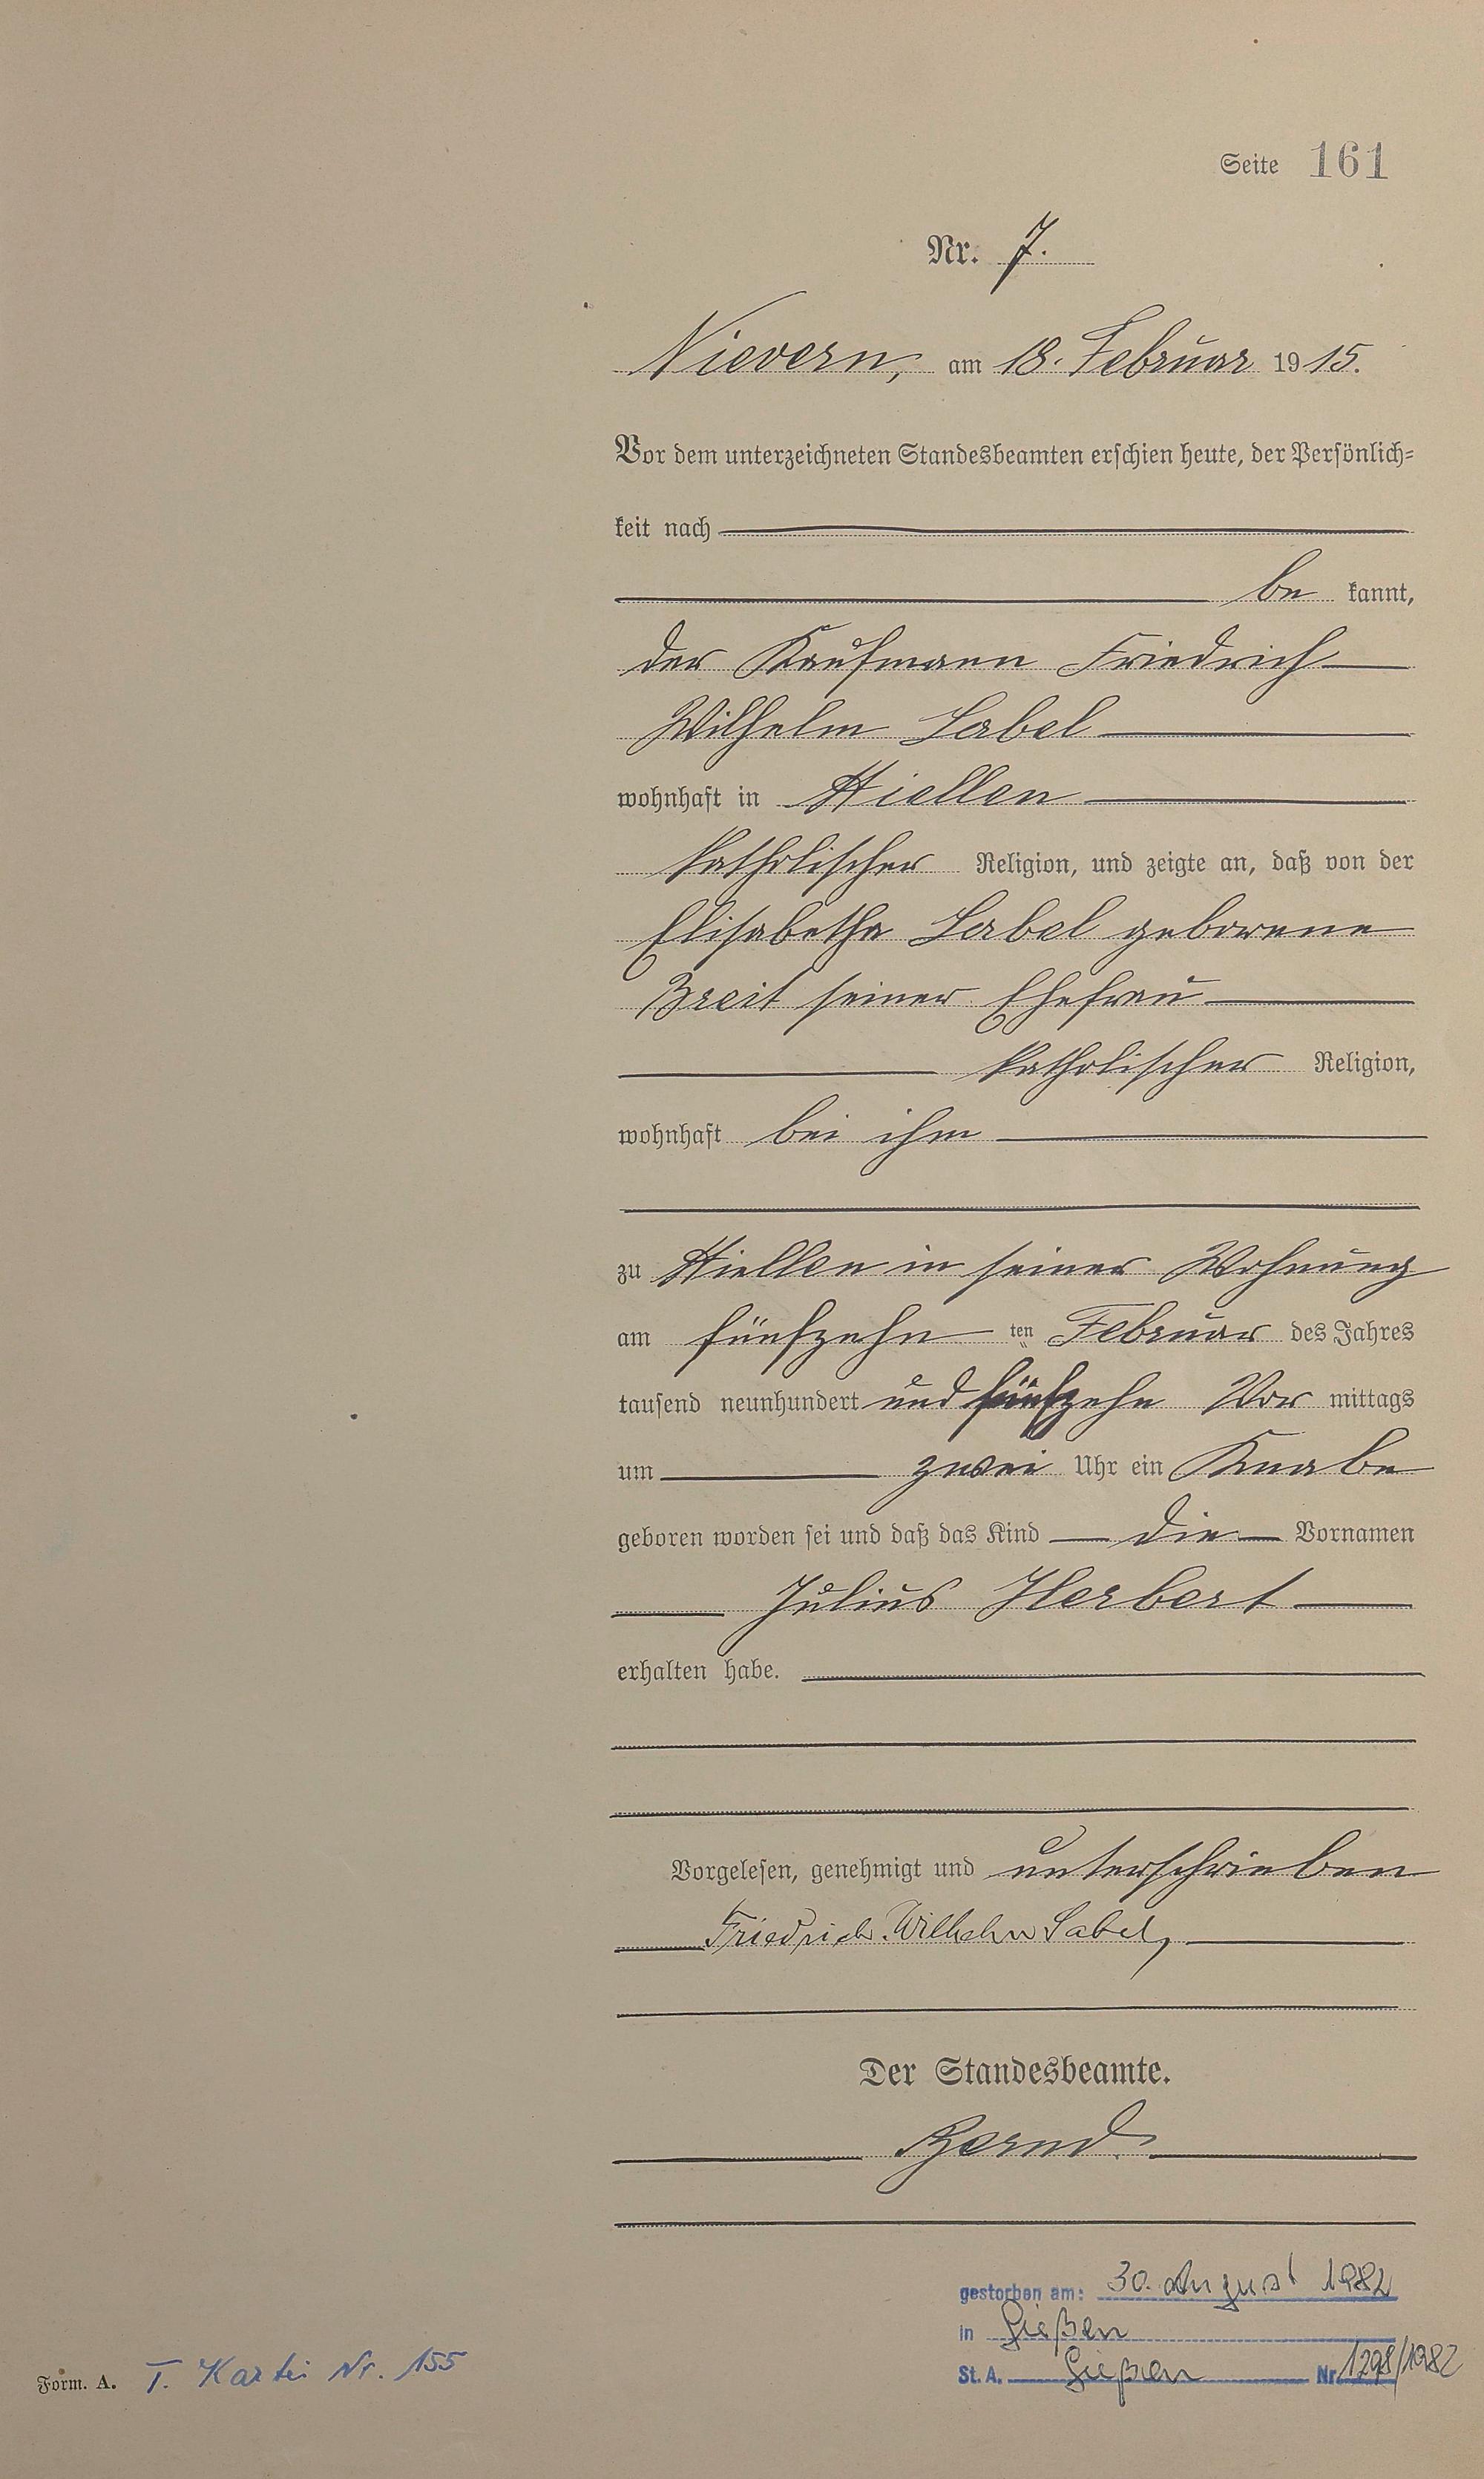 Seite 161
Nr. 7.
Nievern, am 18. Februar 1915.
Vor dem unterzeichneten Standesbeamten erschien heute, der Persönlich=
keit nach
be kannt,
der Kaufmann Friedrich
Wilhelm Sabel
wohnhaft in Miellen
katholischer Religion, und zeigte an, daß von der
Elisabetha Sabel geborene
Breit seiner Ehefrau
katholischer Religion,
wohnhaft bei ihm
zu Miellen in seiner Wohnung
am fünfzehn ten Februar des Jahres
tausend neunhundert und fünfzehn Vor mittags
um zwei Uhr ein Knabe
geboren worden sei und daß das Kind die Vornamen
Julius Herbert
erhalten habe.
Vorgelesen, genehmigt und unterschrieben
Friedrich Wilhelm Sabel,
Der Standesbeamte.
gestorben am: 30. August 1982
in Gießen
St. A. Gießen Nr. 1298/1982
Form. A. T. Kartei Nr. 155